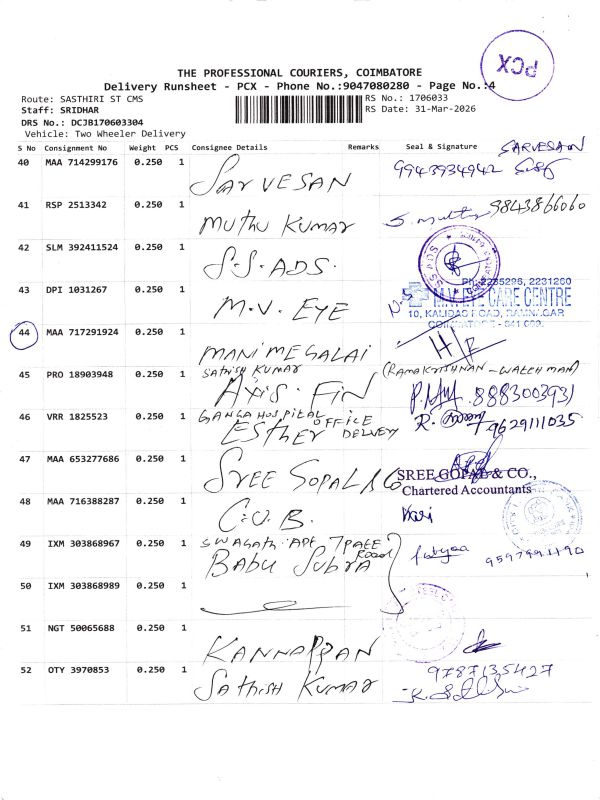 PCX
THE PROFESSIONAL COURIERS, COIMBATORE
Delivery Runsheet - PCX - Phone No.:9047080280 - Page No.:4
Route: SASTHIRI ST CMS
RS No.: 1706033
Staff: SRIDHAR
RS Date: 31-Mar-2026
DRS No.: DCJB170603304
Vehicle: Two Wheeler Delivery
S No Consignment No Weight PCS Consignee Details Remarks Seal & Signature
SARVESAN
40 MAA 714299176 0.250 1 SARVESAN 9943934942
41 RSP 2513342 0.250 1 MUTHU KUMAR 9843866060
42 SLM 392411524 0.250 1 S.S.ADS.
43 DPI 1031267 0.250 1 M.V. EYE
Ph: 2235296, 2231260
M.V. EYE CARE CENTRE
10, KALIDAS ROAD, RAMNAGAR
COIMBATORE - 641 009.
44 MAA 717291924 0.250 1 MANIMEGALAI H/R
(RAMAKRISHNAN - WATCHMAN)
45 PRO 18903948 0.250 1 SATHISH KUMAR
AXIS. FIN 8883003931
46 VRR 1825523 0.250 1 GANGA HOSPITAL
ESTHER OFFICE 9629111035
47 MAA 653277686 0.250 1 SREE GOPAL & CO
SREE GOPAL & CO.,
Chartered Accountants
48 MAA 716388287 0.250 1 C.U.B. Hari
49 IXM 303868967 0.250 1 SWAGATH APT
BABU SUBRA Road
50 IXM 303868989 0.250 1
51 NGT 50065688 0.250 1 KANNAPPAN
52 OTY 3970853 0.250 1 SATHISH KUMAR 9787135427